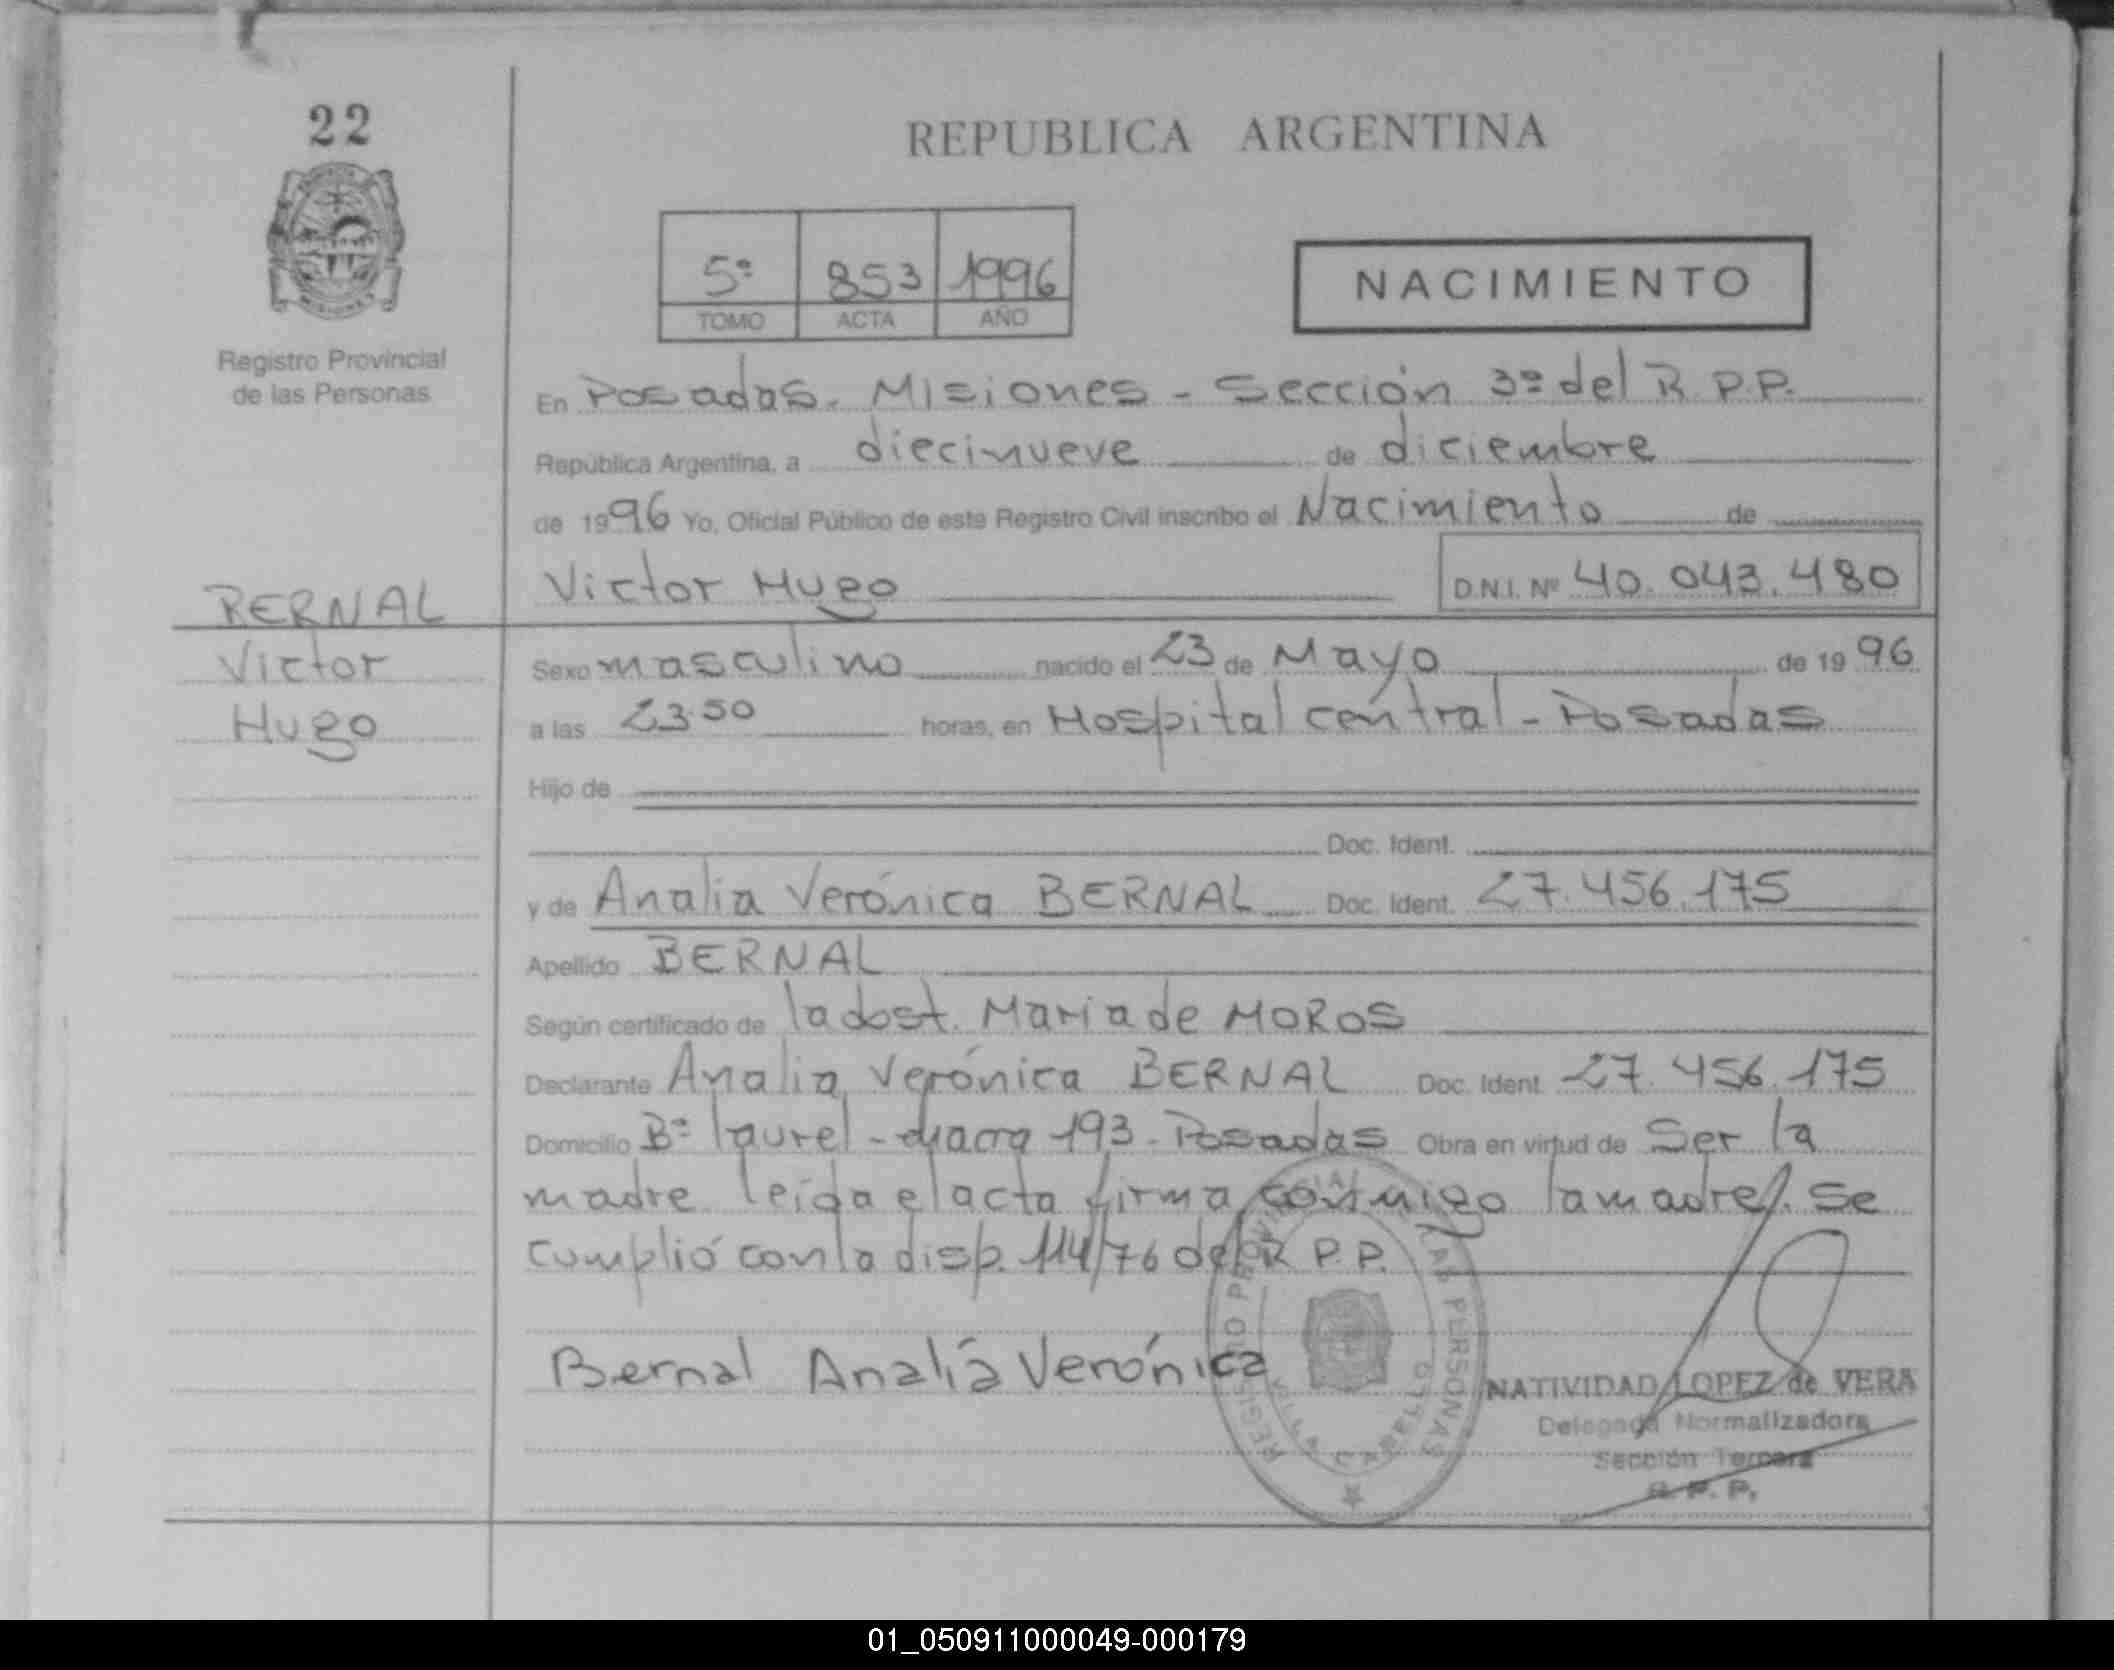 22
REPUBLICA ARGENTINA
5º 853 1996
TOMO ACTA AÑO
NACIMIENTO
Registro Provincial
de las Personas
En Posadas. Misiones - Sección 3º del R.P.P.
República Argentina, a diecinueve de diciembre
de 1996 Yo, Oficial Público de este Registro Civil inscribo el Nacimiento de
BERNAL Victor Hugo D.N.I. Nº 40.043.480
Victor Sexo masculino nacido el 23 de Mayo de 1996
Hugo a las 23.50 horas, en Hospital central - Posadas
Hijo de
Doc. Ident.
y de Analia Verónica BERNAL Doc. Ident. 27.456.175
Apellido BERNAL
Según certificado de la obst. Maria de MOROS
Declarante Analia Verónica BERNAL Doc. Ident. 27.456.175
Domicilio Bº laurel - chacra 193 - Posadas Obra en virtud de Ser la
madre leída el acta firma conmigo la madre. Se
cumplió con la disp. 114/76 del R.P.P.
Bernal Analía Verónica
REGISTRO PROVINCIAL DE LAS PERSONAS
VILLA CABELLO
NATIVIDAD LOPEZ de VERA
Delegada Normalizadora
Sección Tercera
R. P. P.
01_050911000049-000179